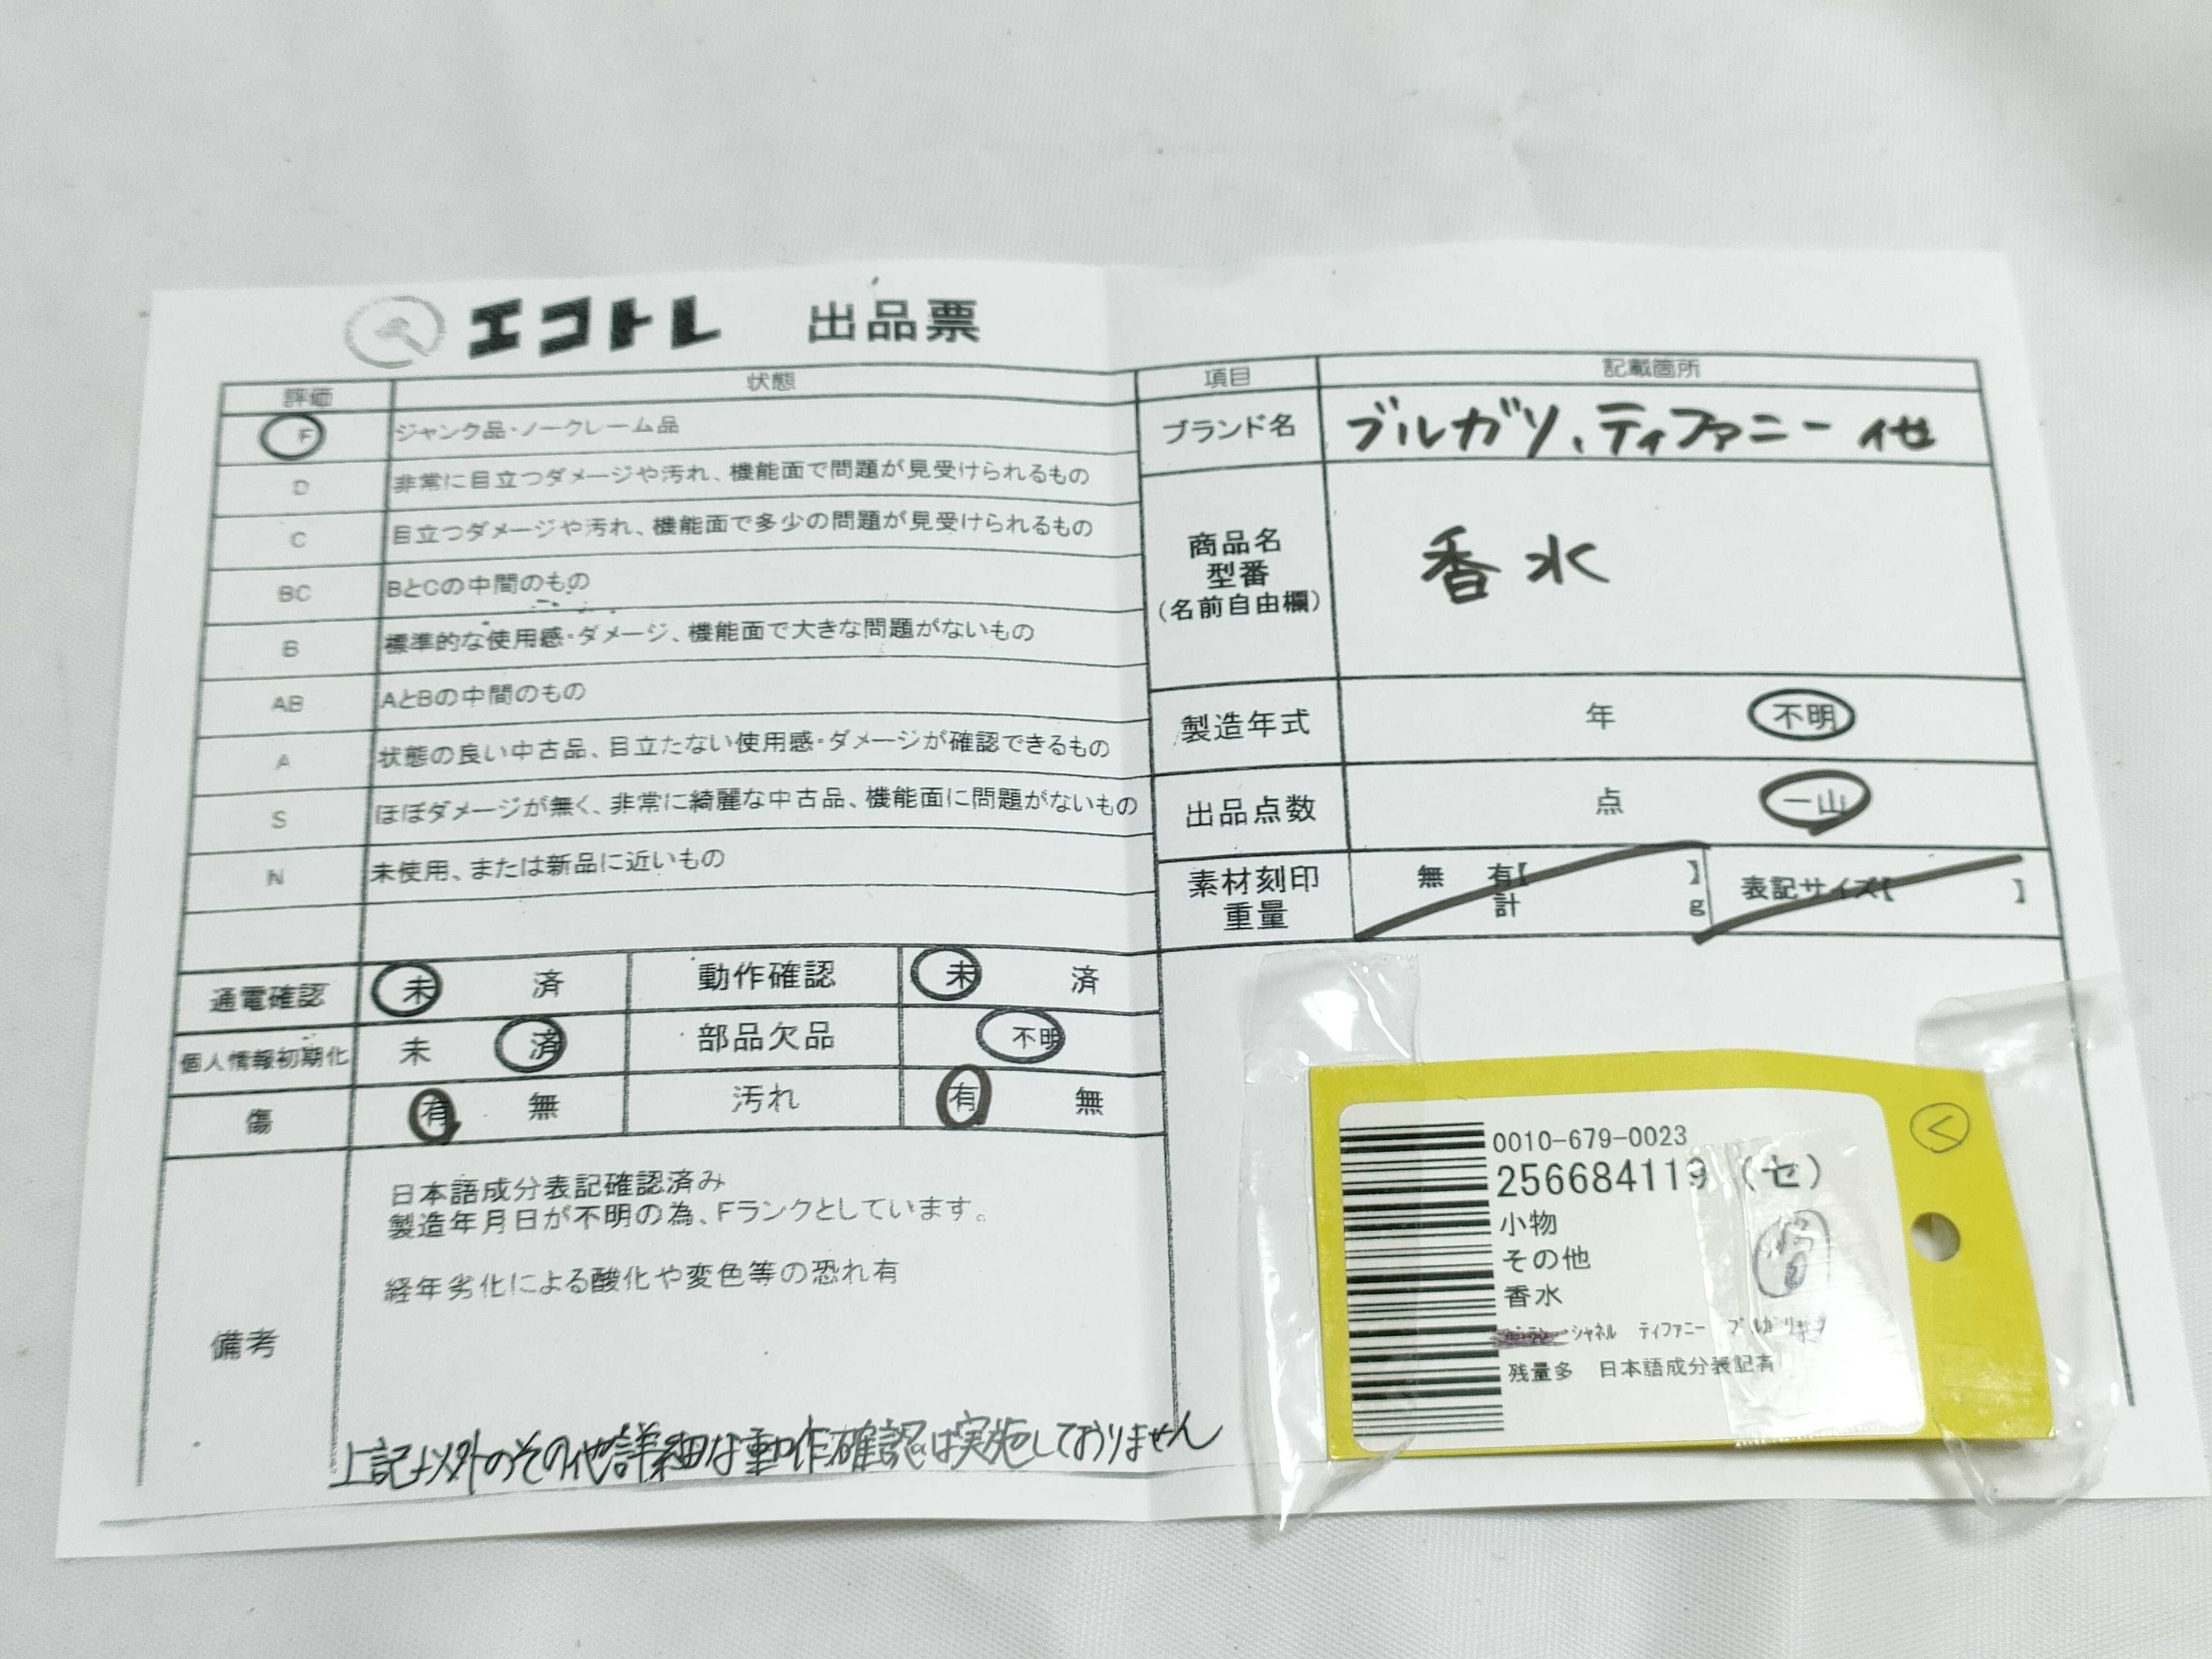 エコトレ 出品票
評価 状態
F ジャンク品・ノークレーム品
D 非常に目立つダメージや汚れ、機能面で問題が見受けられるもの
C 目立つダメージや汚れ、機能面で多少の問題が見受けられるもの
BC BとCの中間のもの
B 標準的な使用感・ダメージ、機能面で大きな問題がないもの
AB AとBの中間のもの
A 状態の良い中古品、目立たない使用感・ダメージが確認できるもの
S ほぼダメージが無く、非常に綺麗な中古品、機能面に問題がないもの
N 未使用、または新品に近いもの
通電確認 未 済 動作確認 未 済
個人情報初期化 未 済 部品欠品 不明
傷 有 無 汚れ 有 無
備考
日本語成分表記確認済み
製造年月日が不明の為、Fランクとしています。
経年劣化による酸化や変色等の恐れ有
上記以外のその他詳細な動作確認は実施しておりません
項目 記載箇所
ブランド名 ブルガリ、ティファニー 他
商品名
型番
(名前自由欄)
香水
製造年式 年 不明
出品点数 点 一山
素材刻印 無 有【 】 表記サイズ【 】
重量 計 g
0010-679-0023
256684119 (セ)
小物
その他
香水
シャネル ティファニー ブルガリ
残量多 日本語成分表記有
く